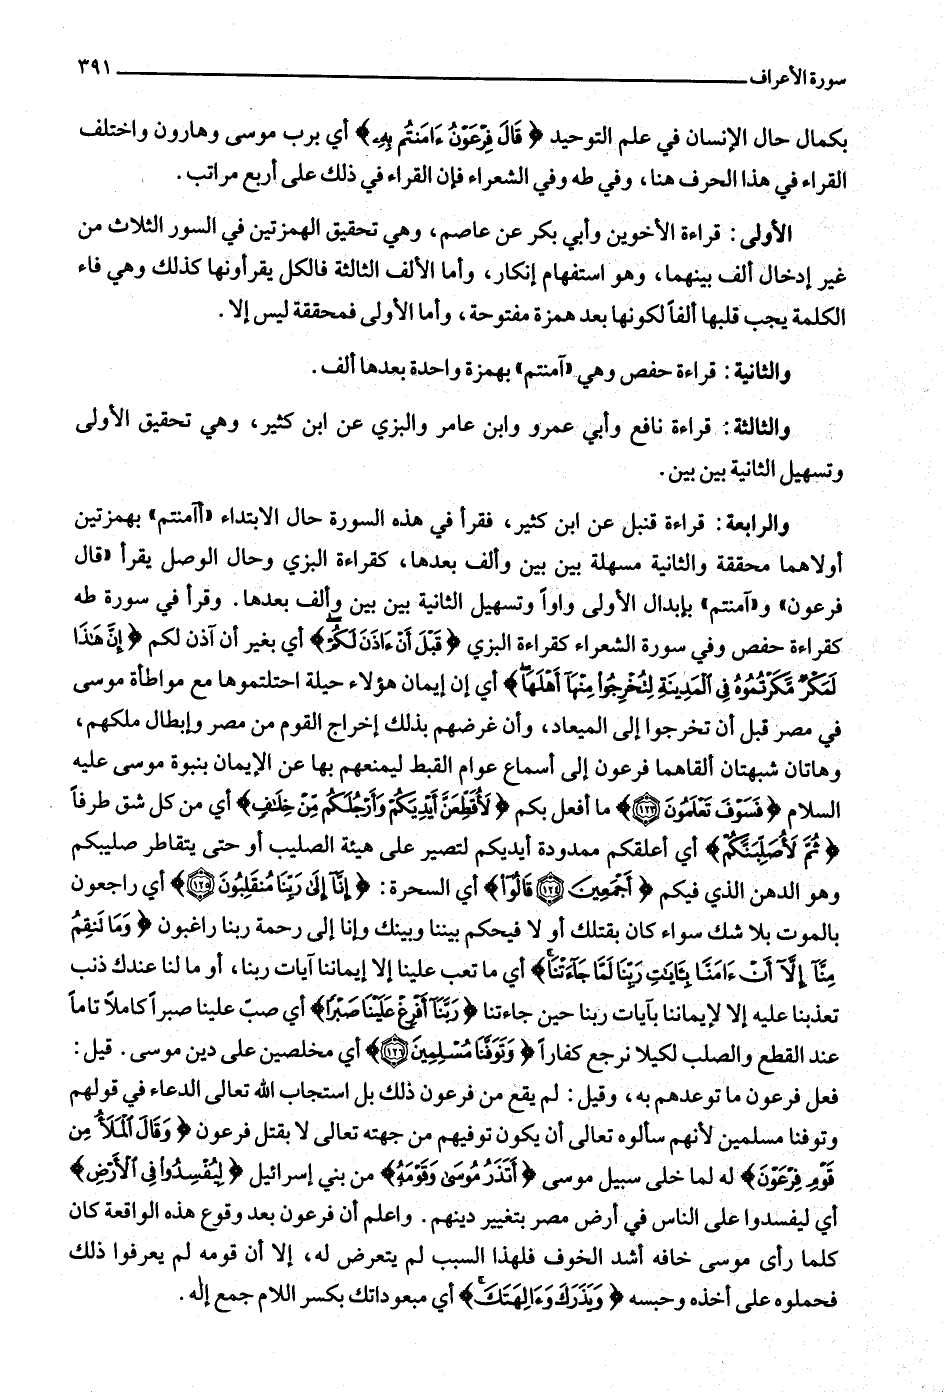 سورة الأعراف ٣٩١
بكمال حال الإنسان في علم التوحيد ﴿ قَالَ فِرْعَوْنُ ءَامَنتُم بِهِۦ ﴾ أي برب موسى وهارون واختلف
القراء في هذا الحرف هنا، وفي طه وفي الشعراء فإن القراء في ذلك على أربع مراتب.
الأولى: قراءة الأخوين وأبي بكر عن عاصم، وهي تحقيق الهمزتين في السور الثلاث من
غير إدخال ألف بينهما، وهو استفهام إنكار، وأما الألف الثالثة فالكل يقرأونها كذلك وهي فاء
الكلمة يجب قلبها ألفاً لكونها بعد همزة مفتوحة، وأما الأولى فمحققة ليس إلا.
والثانية: قراءة حفص وهي «آمنتم» بهمزة واحدة بعدها ألف.
والثالثة: قراءة نافع وأبي عمرو وابن عامر والبزي عن ابن كثير، وهي تحقيق الأولى
وتسهيل الثانية بين بين.
والرابعة: قراءة قنبل عن ابن كثير، فقرأ في هذه السورة حال الابتداء «أآمنتم» بهمزتين
أولاهما محققة والثانية مسهلة بين بين وألف بعدها، كقراءة البزي وحال الوصل يقرأ «قال
فرعون» و«آمنتم» بإبدال الأولى واواً وتسهيل الثانية بين بين وألف بعدها. وقرأ في سورة طه
كقراءة حفص وفي سورة الشعراء كقراءة البزي ﴿ قَبْلَ أَنْ ءَاذَنَ لَكُمْ ﴾ أي بغير أن آذن لكم ﴿ إِنَّ هَٰذَا
لَمَكْرٌ مَّكَرْتُمُوهُ فِي الْمَدِينَةِ لِتُخْرِجُوا مِنْهَآ أَهْلَهَا ﴾ أي إن إيمان هؤلاء حيلة احتلتموها مع مواطأة موسى
في مصر قبل أن تخرجوا إلى الميعاد، وأن غرضهم بذلك إخراج القوم من مصر وإبطال ملكهم،
وهاتان شبهتان ألقاهما فرعون إلى أسماع عوام القبط ليمنعهم بها عن الإيمان بنبوة موسى عليه
السلام ﴿ فَسَوْفَ تَعْلَمُونَ ١٢٣ ﴾ ما أفعل بكم ﴿ لَأُقَطِّعَنَّ أَيْدِيَكُمْ وَأَرْجُلَكُم مِّنْ خِلَٰفٍ ﴾ أي من كل شق طرفاً
﴿ ثُمَّ لَأُصَلِّبَنَّكُمْ ﴾ أي أعلقكم ممدودة أيديكم لتصير على هيئة الصليب أو حتى يتقاطر صليبكم
وهو الدهن الذي فيكم ﴿ أَجْمَعِينَ ١٢٤ قَالُوٓا ﴾ أي السحرة: ﴿ إِنَّآ إِلَىٰ رَبِّنَا مُنقَلِبُونَ ١٢٥ ﴾ أي راجعون
بالموت بلا شك سواء كان بقتلك أو لا فيحكم بيننا وبينك وإنا إلى رحمة ربنا راغبون ﴿ وَمَا تَنقِمُ
مِنَّآ إِلَّآ أَنْ ءَامَنَّا بِـَٔايَٰتِ رَبِّنَا لَمَّا جَآءَتْنَا ﴾ أي ما تعب علينا إلا إيماننا آيات ربنا، أو ما لنا عندك ذنب
تعذبنا عليه إلا لإيماننا بآيات ربنا حين جاءتنا ﴿ رَبَّنَآ أَفْرِغْ عَلَيْنَا صَبْرًا ﴾ أي صبّ علينا صبراً كاملاً تاماً
عند القطع والصلب لكيلا نرجع كفاراً ﴿ وَتَوَفَّنَا مُسْلِمِينَ ١٢٦ ﴾ أي مخلصين على دين موسى. قيل:
فعل فرعون ما توعدهم به، وقيل: لم يقع من فرعون ذلك بل استجاب الله تعالى الدعاء في قولهم
وتوفنا مسلمين لأنهم سألوه تعالى أن يكون توفيهم من جهته تعالى لا بقتل فرعون ﴿ وَقَالَ الْمَلَأُ مِن
قَوْمِ فِرْعَوْنَ ﴾ له لما خلى سبيل موسى ﴿ أَتَذَرُ مُوسَىٰ وَقَوْمَهُ ﴾ من بني إسرائيل ﴿ لِيُفْسِدُوا فِي الْأَرْضِ ﴾
أي ليفسدوا على الناس في أرض مصر بتغيير دينهم. واعلم أن فرعون بعد وقوع هذه الواقعة كان
كلما رأى موسى خافه أشد الخوف فلهذا السبب لم يتعرض له، إلا أن قومه لم يعرفوا ذلك
فحملوه على أخذه وحبسه ﴿ وَيَذَرَكَ وَءَالِهَتَكَ ﴾ أي مبعوداتك بكسر اللام جمع إلٰه.